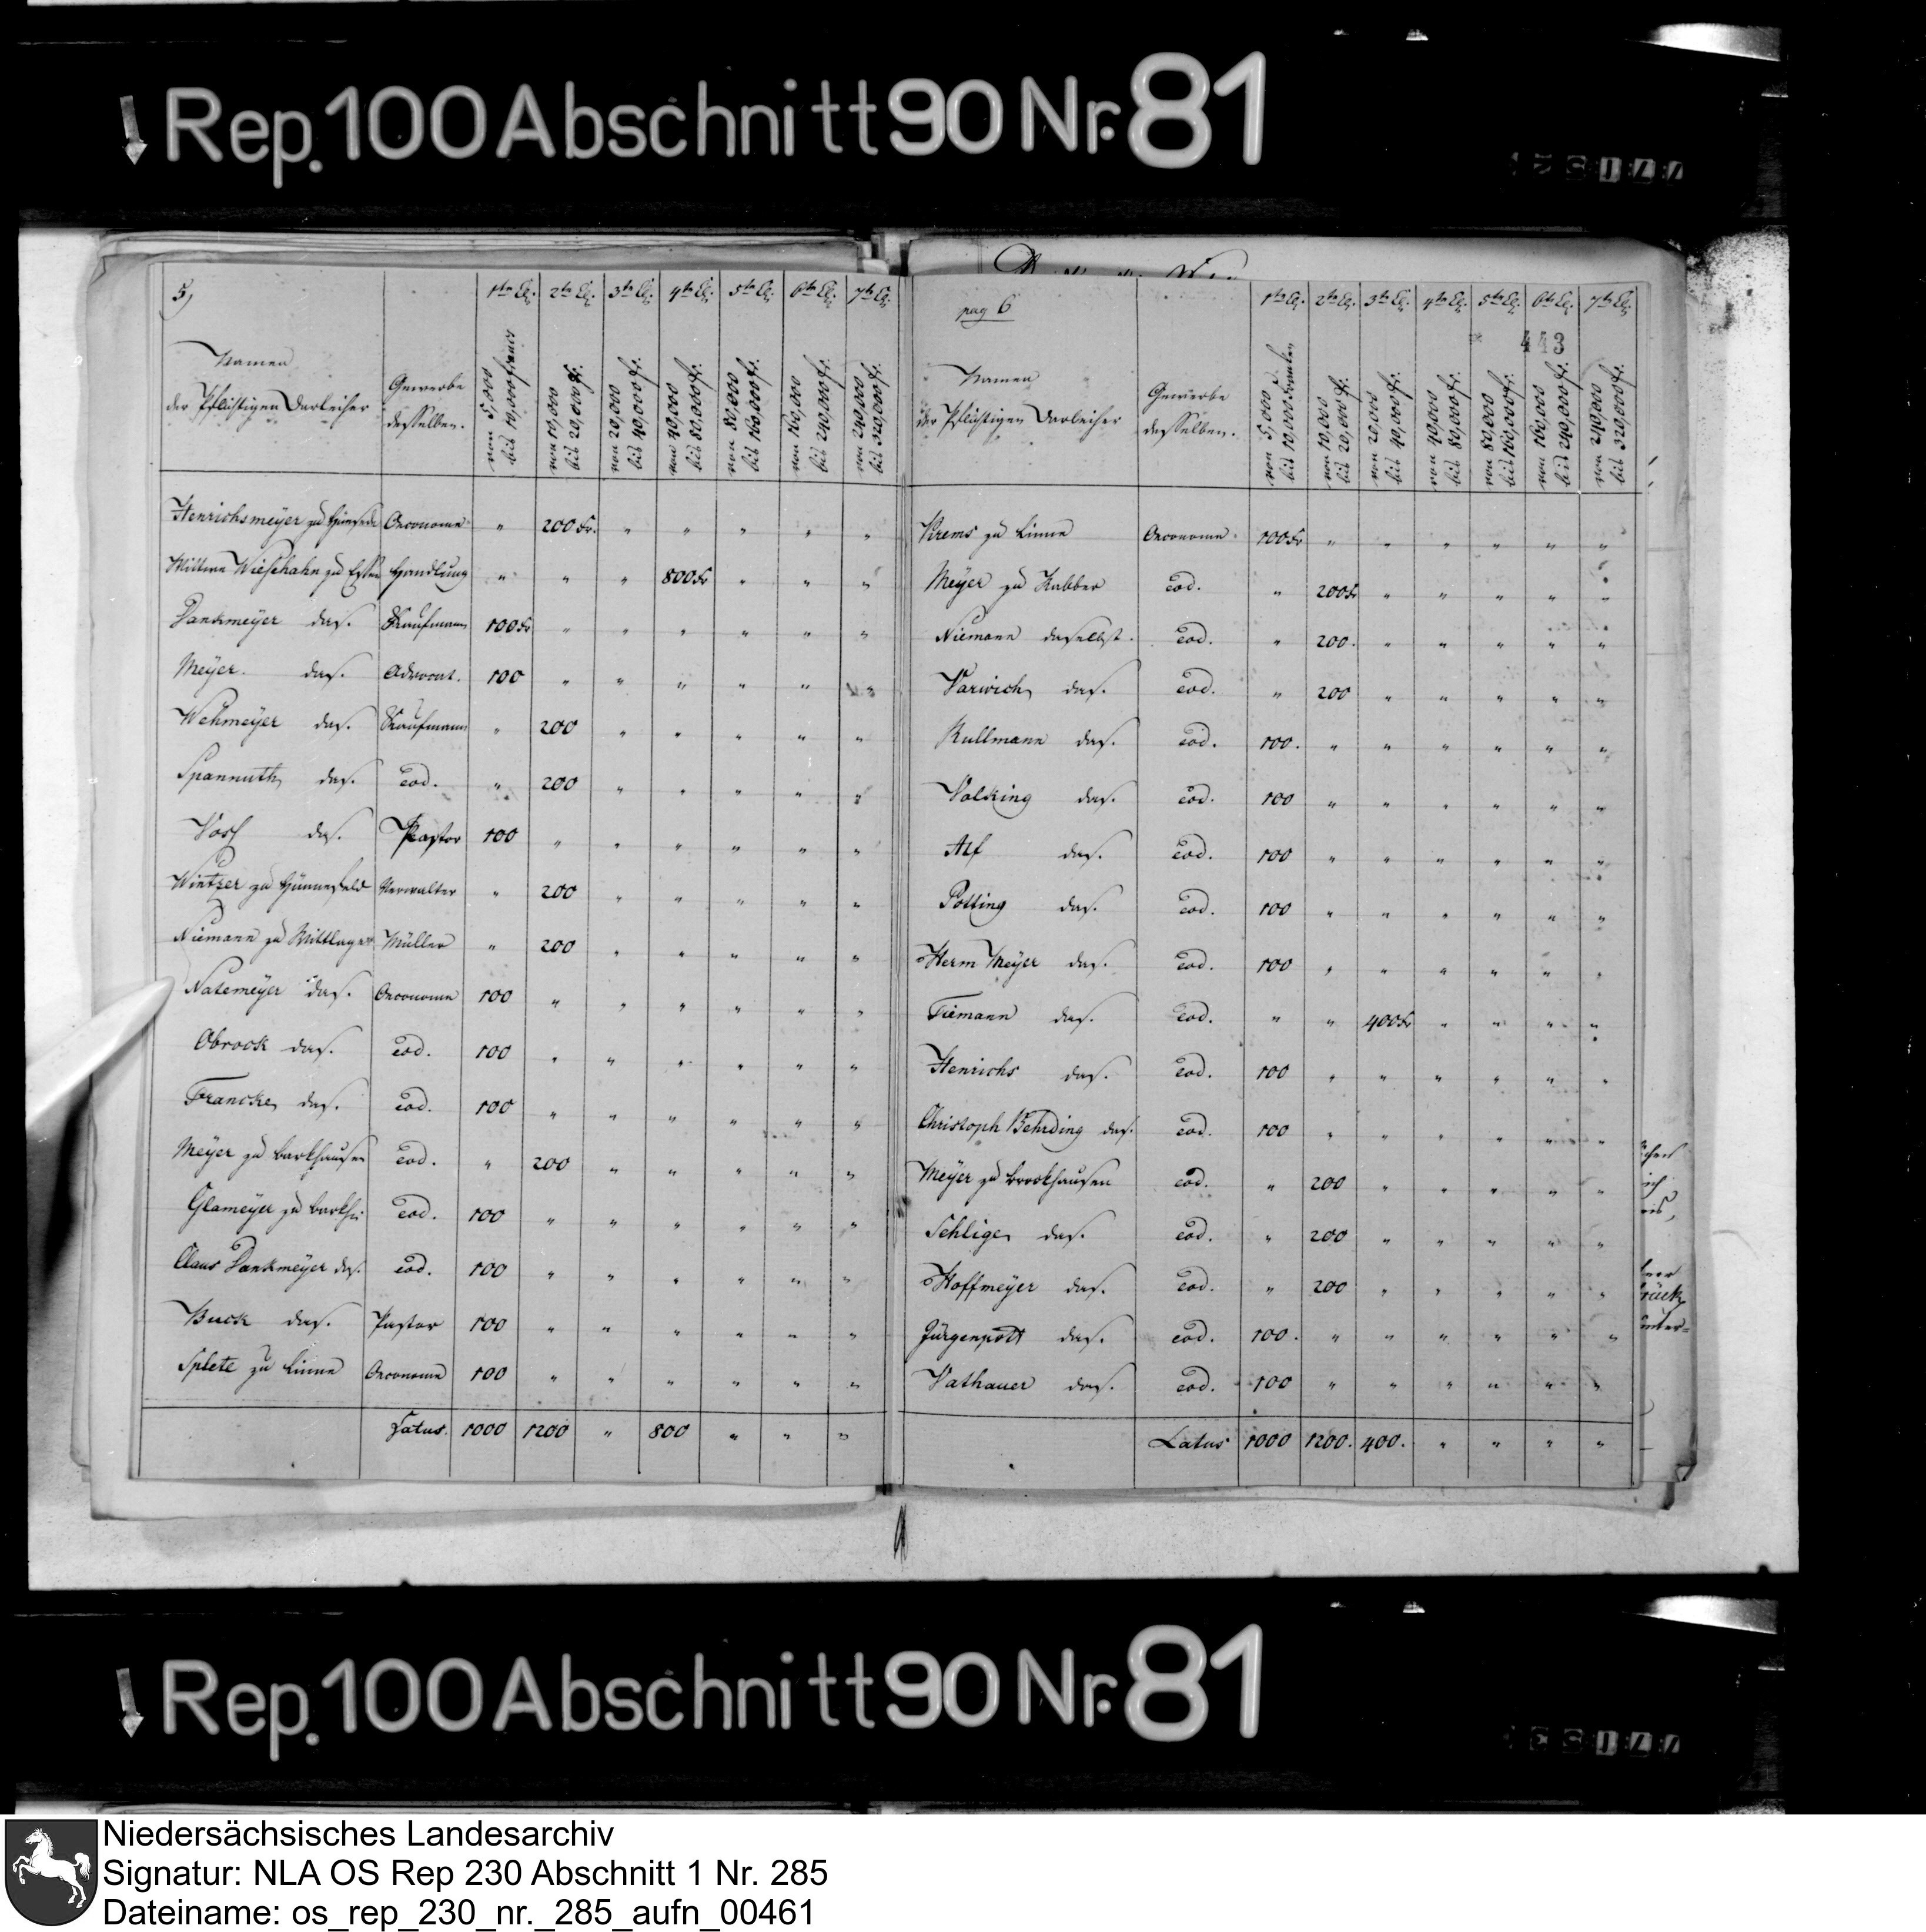 Rep. 100 Abschnitt 90 Nr. 81
5,
1te Cl. 2te Cl. 3te Cl. 4te Cl. 5te Cl. 6te Cl. 7te Cl.
Namen der Pflichtigen Darleiher
Gewerbe desselben.
von 5,000 bis 10,000 francs
von 10,000 bis 20,000 fr.
von 20,000 bis 40,000 fr.
von 40,000 bis 80,000 fr.
von 80,000 bis 160,000 fr.
von 160,000 bis 240,000 fr.
von 240,000 bis 320,000 fr.
Henrichsmeyer zu Oeconome " 200 Fr. " " " " "
Wittwe Wiesehahn zu Essen Handlung " " " 800 Fr " " "
Dankmeyer das. Kaufmann 100 Fr " " " " " "
Meyer das. Advocat. 100 " " " " " "
Wehmeyer das. Kaufmann " 200 " " " " "
Spannuth das. eod. " 200 " " " " "
Voss das. Pastor 100 " " " " " "
Wintzer zu Hünnefeld Verwalter " 200 " " " " "
Niemann zu Wittlage Müller " 200 " " " " "
Natemeyer das. Oeconome 100 " " " " " "
Obrock das. eod. 100 " " " " " "
Francke das. eod. 100 " " " " " "
Meyer zu Barkhausen eod. " 200 " " " " "
Glameyer zu Barkh: eod. 100 " " " " " "
Claus Dankmeyer das. eod. 100 " " " " " "
Buck das. Pastor 100 " " " " " "
Splete zu Linne Oeconome 100 " " " " " "
Latus. 1000 1200 " 800 " " "
pag 6
1te Cl. 2te Cl. 3te Cl. 4te Cl. 5te Cl. 6te Cl. 7te Cl.
443
Namen der Pflichtigen Darleiher
Gewerbe desselben.
von 5,000 bis 10,000 Franken
von 10,000 bis 20,000 fr.
von 20,000 bis 40,000 fr.
von 40,000 bis 80,000 fr.
von 80,000 bis 160,000 fr.
von 160,000 bis 240,000 fr.
von 240,000 bis 320,000 fr.
Krems zu Linne Oeconome 100 Fr " " " " " "
Meyer zu Rabber eod. " 200 Fr " " " " "
Niemann daselbst. eod. " 200. " " " " "
Varwich das. eod. " 200 " " " " "
Kullmann das. eod. 100. " " " " " "
Volking das. eod. 100 " " " " " "
Alf das. eod. 100 " " " " " "
Potting das. eod. 100 " " " " " "
Herm Meyer das. eod. 100 " " " " " "
Tiemann das. eod. " " 400 Fr " " " "
Henrichs das. eod. 100 " " " " " "
Christoph Behrding das. eod. 100 " " " " " "
Meyer zu Brockhausen eod. " 200 " " " " "
Schlige das. eod. " 200 " " " " "
Hoffmeyer das. eod. " 200 " " " " "
Jürgenpott das. eod. 100. " " " " " "
Vathauer das. eod. 100 " " " " " "
Latus 1000 1200. 400. " " " "
Rep. 100 Abschnitt 90 Nr. 81
Niedersächsisches Landesarchiv
Signatur: NLA OS Rep 230 Abschnitt 1 Nr. 285
Dateiname: os_rep_230_nr._285_aufn_00461